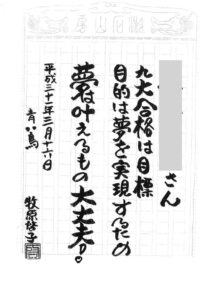 さん
九大合格は目標
目的は夢を実現するため
夢は叶えるもの大丈夫!。
平成三十一年三月十六日
青い鳥
牧原